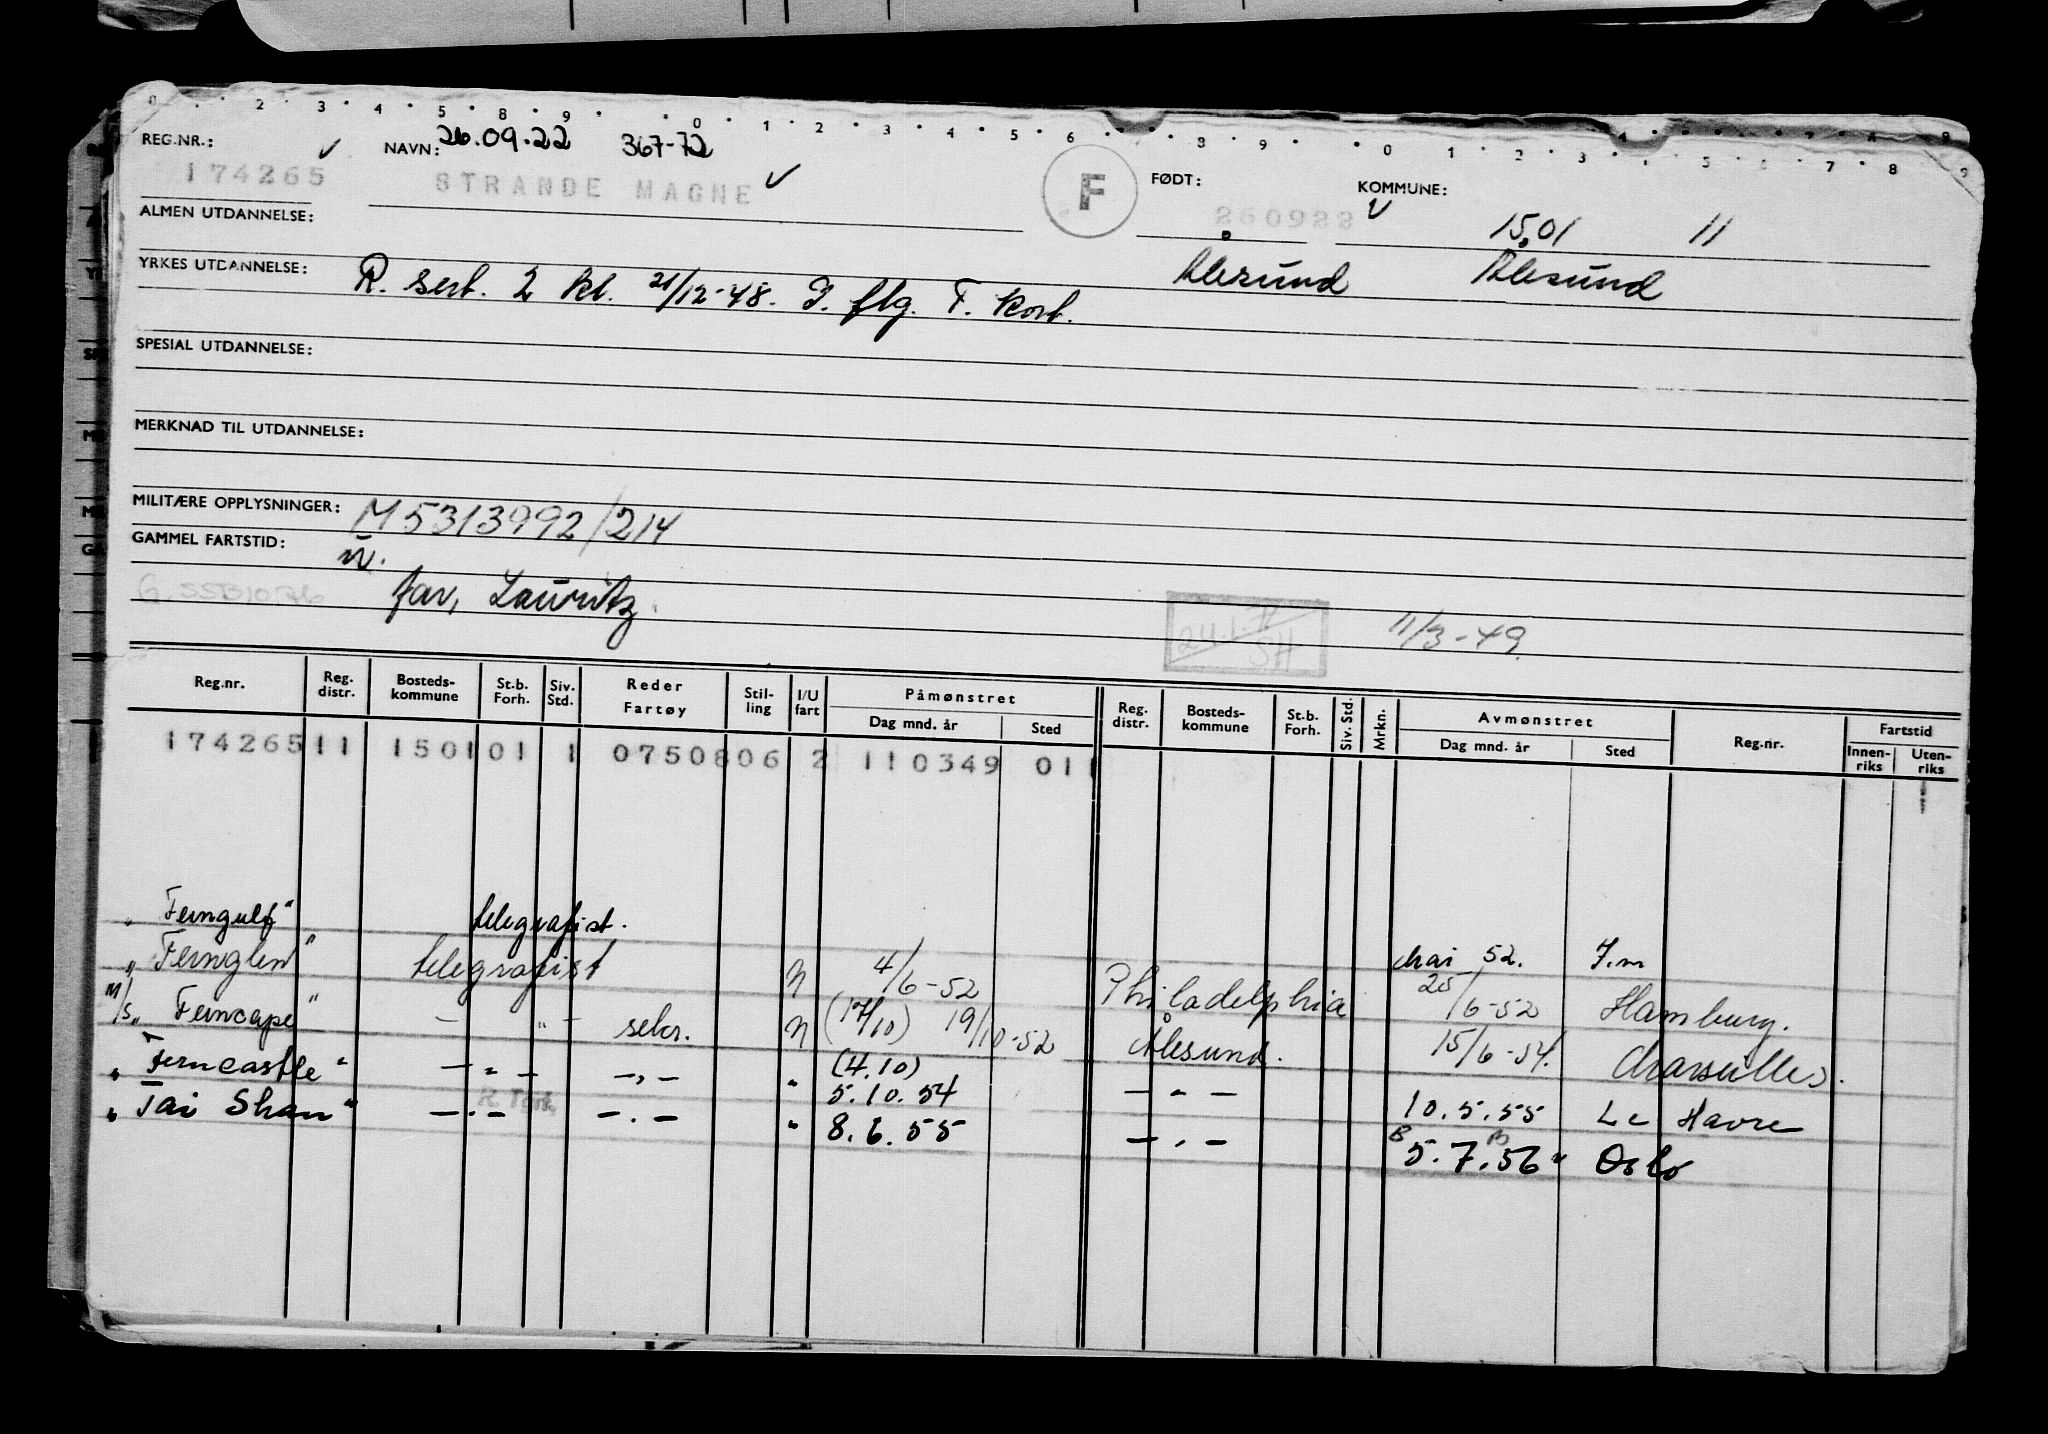 0 2 3 4 5 8 9 0 1 2 3 4 5 6 8 9 0 1 2 3 5 6 7 8 9
REG.NR.: NAVN: 26.09.22 367-72 FØDT: KOMMUNE:
174265 STRANDE MAGNE F 260922 1501 11
ALMEN UTDANNELSE:
Ålesund Ålesund
YRKES UTDANNELSE: R. sert. 2 kl. 21/12-48. I. flg. T. kort.
SPESIAL UTDANNELSE:
MERKNAD TIL UTDANNELSE:
MILITÆRE OPPLYSNINGER: M5313992/214
GAMMEL FARTSTID: N.
far, Lauritz.
11/3-49.
Reg.nr. Reg. distr. Bosteds-kommune St.b. Forh. Siv. Std. Reder Fartøy Stil-ling I/U fart Påmønstret Dag mnd. år Sted Reg. distr. Bosteds-kommune St.b. Forh. Siv. Std. Mrkn. Avmønstret Dag mnd. år Sted Reg.nr. Fartstid Innen-riks Uten-riks
174265 11 1501 01 1 0750806 2 110349 011
" Ferngulf" telegrafist. Mai 52. F.m
" Fernglen" telegrafist N 4/6-52 Philadelphia 25/6-52 Hamburg.
M/S " Ferncape" - " - sekr. N (17/10) 19/10-52 Ålesund. 15/6-54. Marseilles.
" Ferncastle" - " - - " - " (4.10) 5.10.54 - " - 10.5.55 Le Havre
" Tai Shan" - " - - " - " 8.6.55 - " - 5.7.56 Oslo